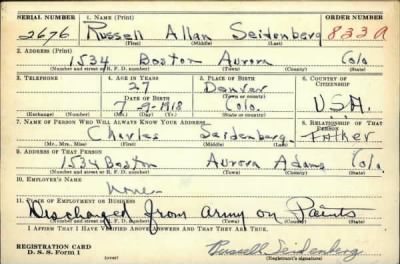 SERIAL NUMBER 1. NAME (Print) ORDER NUMBER
2676 Russell Allan Seidenberg 833A
(First) (Middle) (Last)
2. ADDRESS (Print)
1534 Boston Aurora Colo
(Number and street or R. F. D. number) (Town) (County) (State)
3. TELEPHONE 4. AGE IN YEARS 5. PLACE OF BIRTH 6. COUNTRY OF CITIZENSHIP
27 Denver
DATE OF BIRTH (Town or county)
7-9-1918 Colo. U.S.A.
(Exchange) (Number) (Mo.) (Day) (Yr.) (State or country)
7. NAME OF PERSON WHO WILL ALWAYS KNOW YOUR ADDRESS 8. RELATIONSHIP OF THAT PERSON
Charles Seidenberg Father
(Mr., Mrs., Miss) (First) (Middle) (Last)
9. ADDRESS OF THAT PERSON
1534 Boston Aurora Adams Colo.
(Number and street or R. F. D. number) (Town) (County) (State)
10. EMPLOYER'S NAME
none
11. PLACE OF EMPLOYMENT OR BUSINESS
Discharged from Army on Points
(Number and street or R. F. D. number) (Town) (County) (State)
I AFFIRM THAT I HAVE VERIFIED ABOVE ANSWERS AND THAT THEY ARE TRUE.
REGISTRATION CARD
D. S. S. Form 1 (over) Russell Seidenberg
(Registrant's signature)